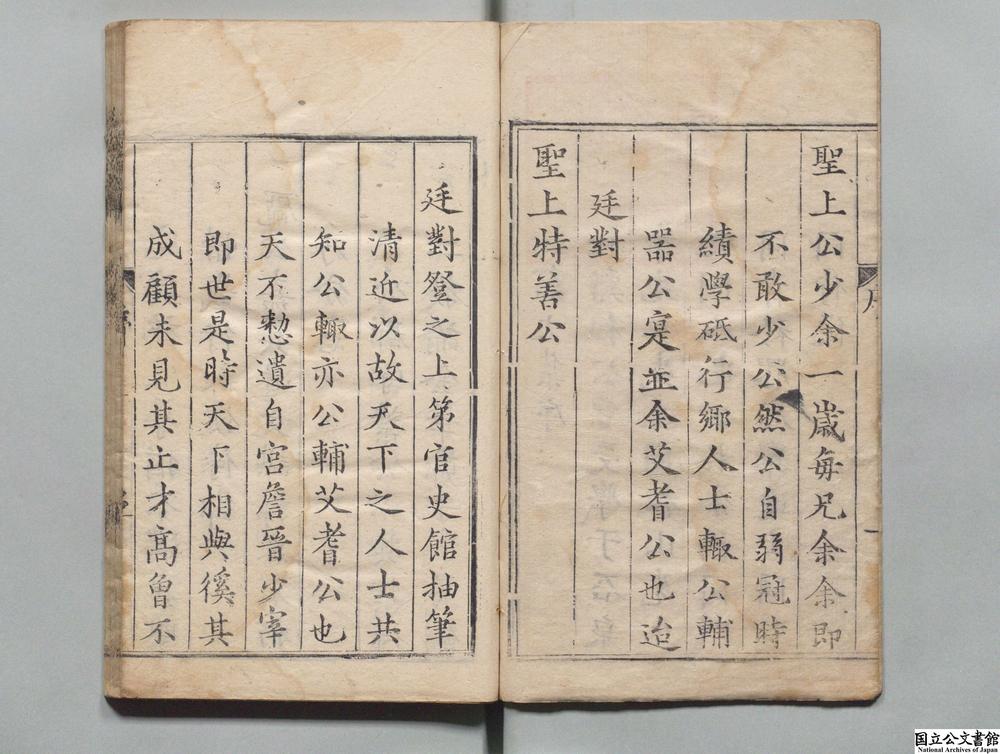 聖上公少余一歲每兄余余即
不敢少公然公自弱冠時
績學砥行鄉人士輙公輔
器公寔並余艾耆公也迨
廷對
聖上特善公
序
一
廷對登之上第官史館抽筆
清近以故天下之人士共
知公輙亦公輔艾耆公也
天不憖遺自宮詹晉少宰
即世是時天下相與徯其
成顧未見其止才高曾不
国立公文書館
National Archives of Japan